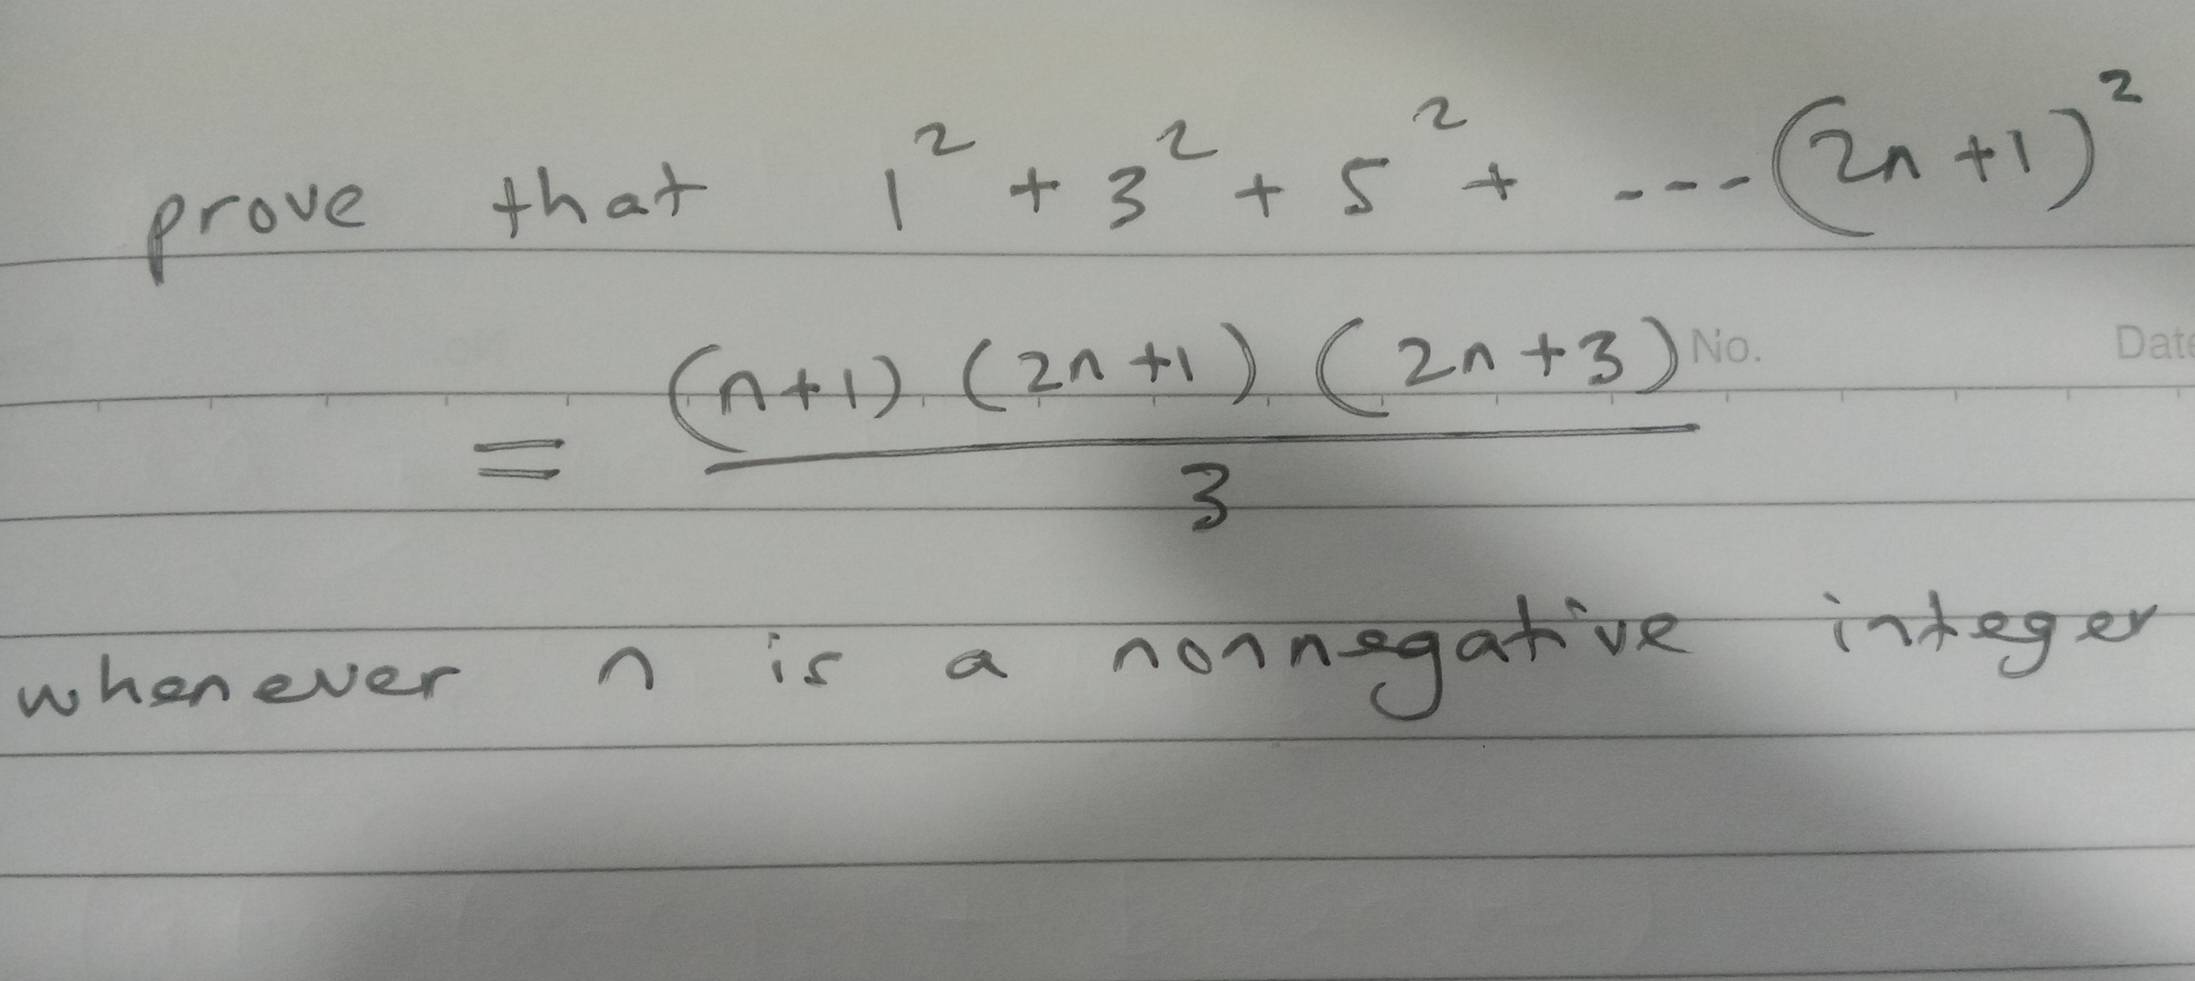 prove that 1² + 3² + 5² + ---- (2n+1)²
= (n+1) (2n+1) (2n+3) / 3
No. Date
whenever n is a nonnegative integer